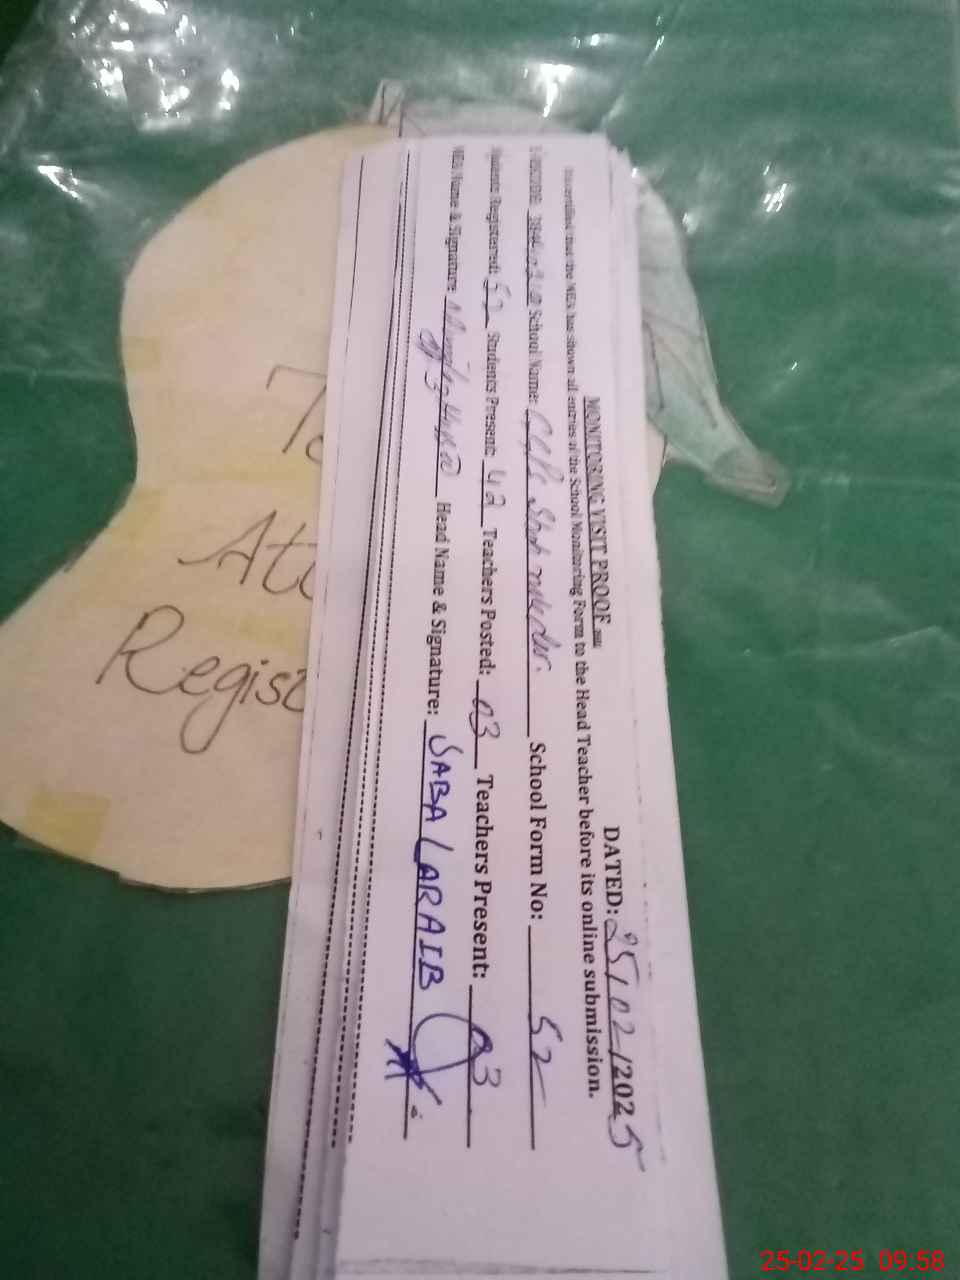 MONITORING VISIT PROOF
DATED: 25/02/2025
It is certified that the MEA has shown all entries of the School Monitoring Form to the Head Teacher before its online submission.
School Name: School Form No: 52
Students Registered: 52 Students Present: 42 Teachers Posted: 03 Teachers Present: 03
MEA Name & Signature Head Name & Signature: SABA LARAIB
Regist
25-02-25 09:58